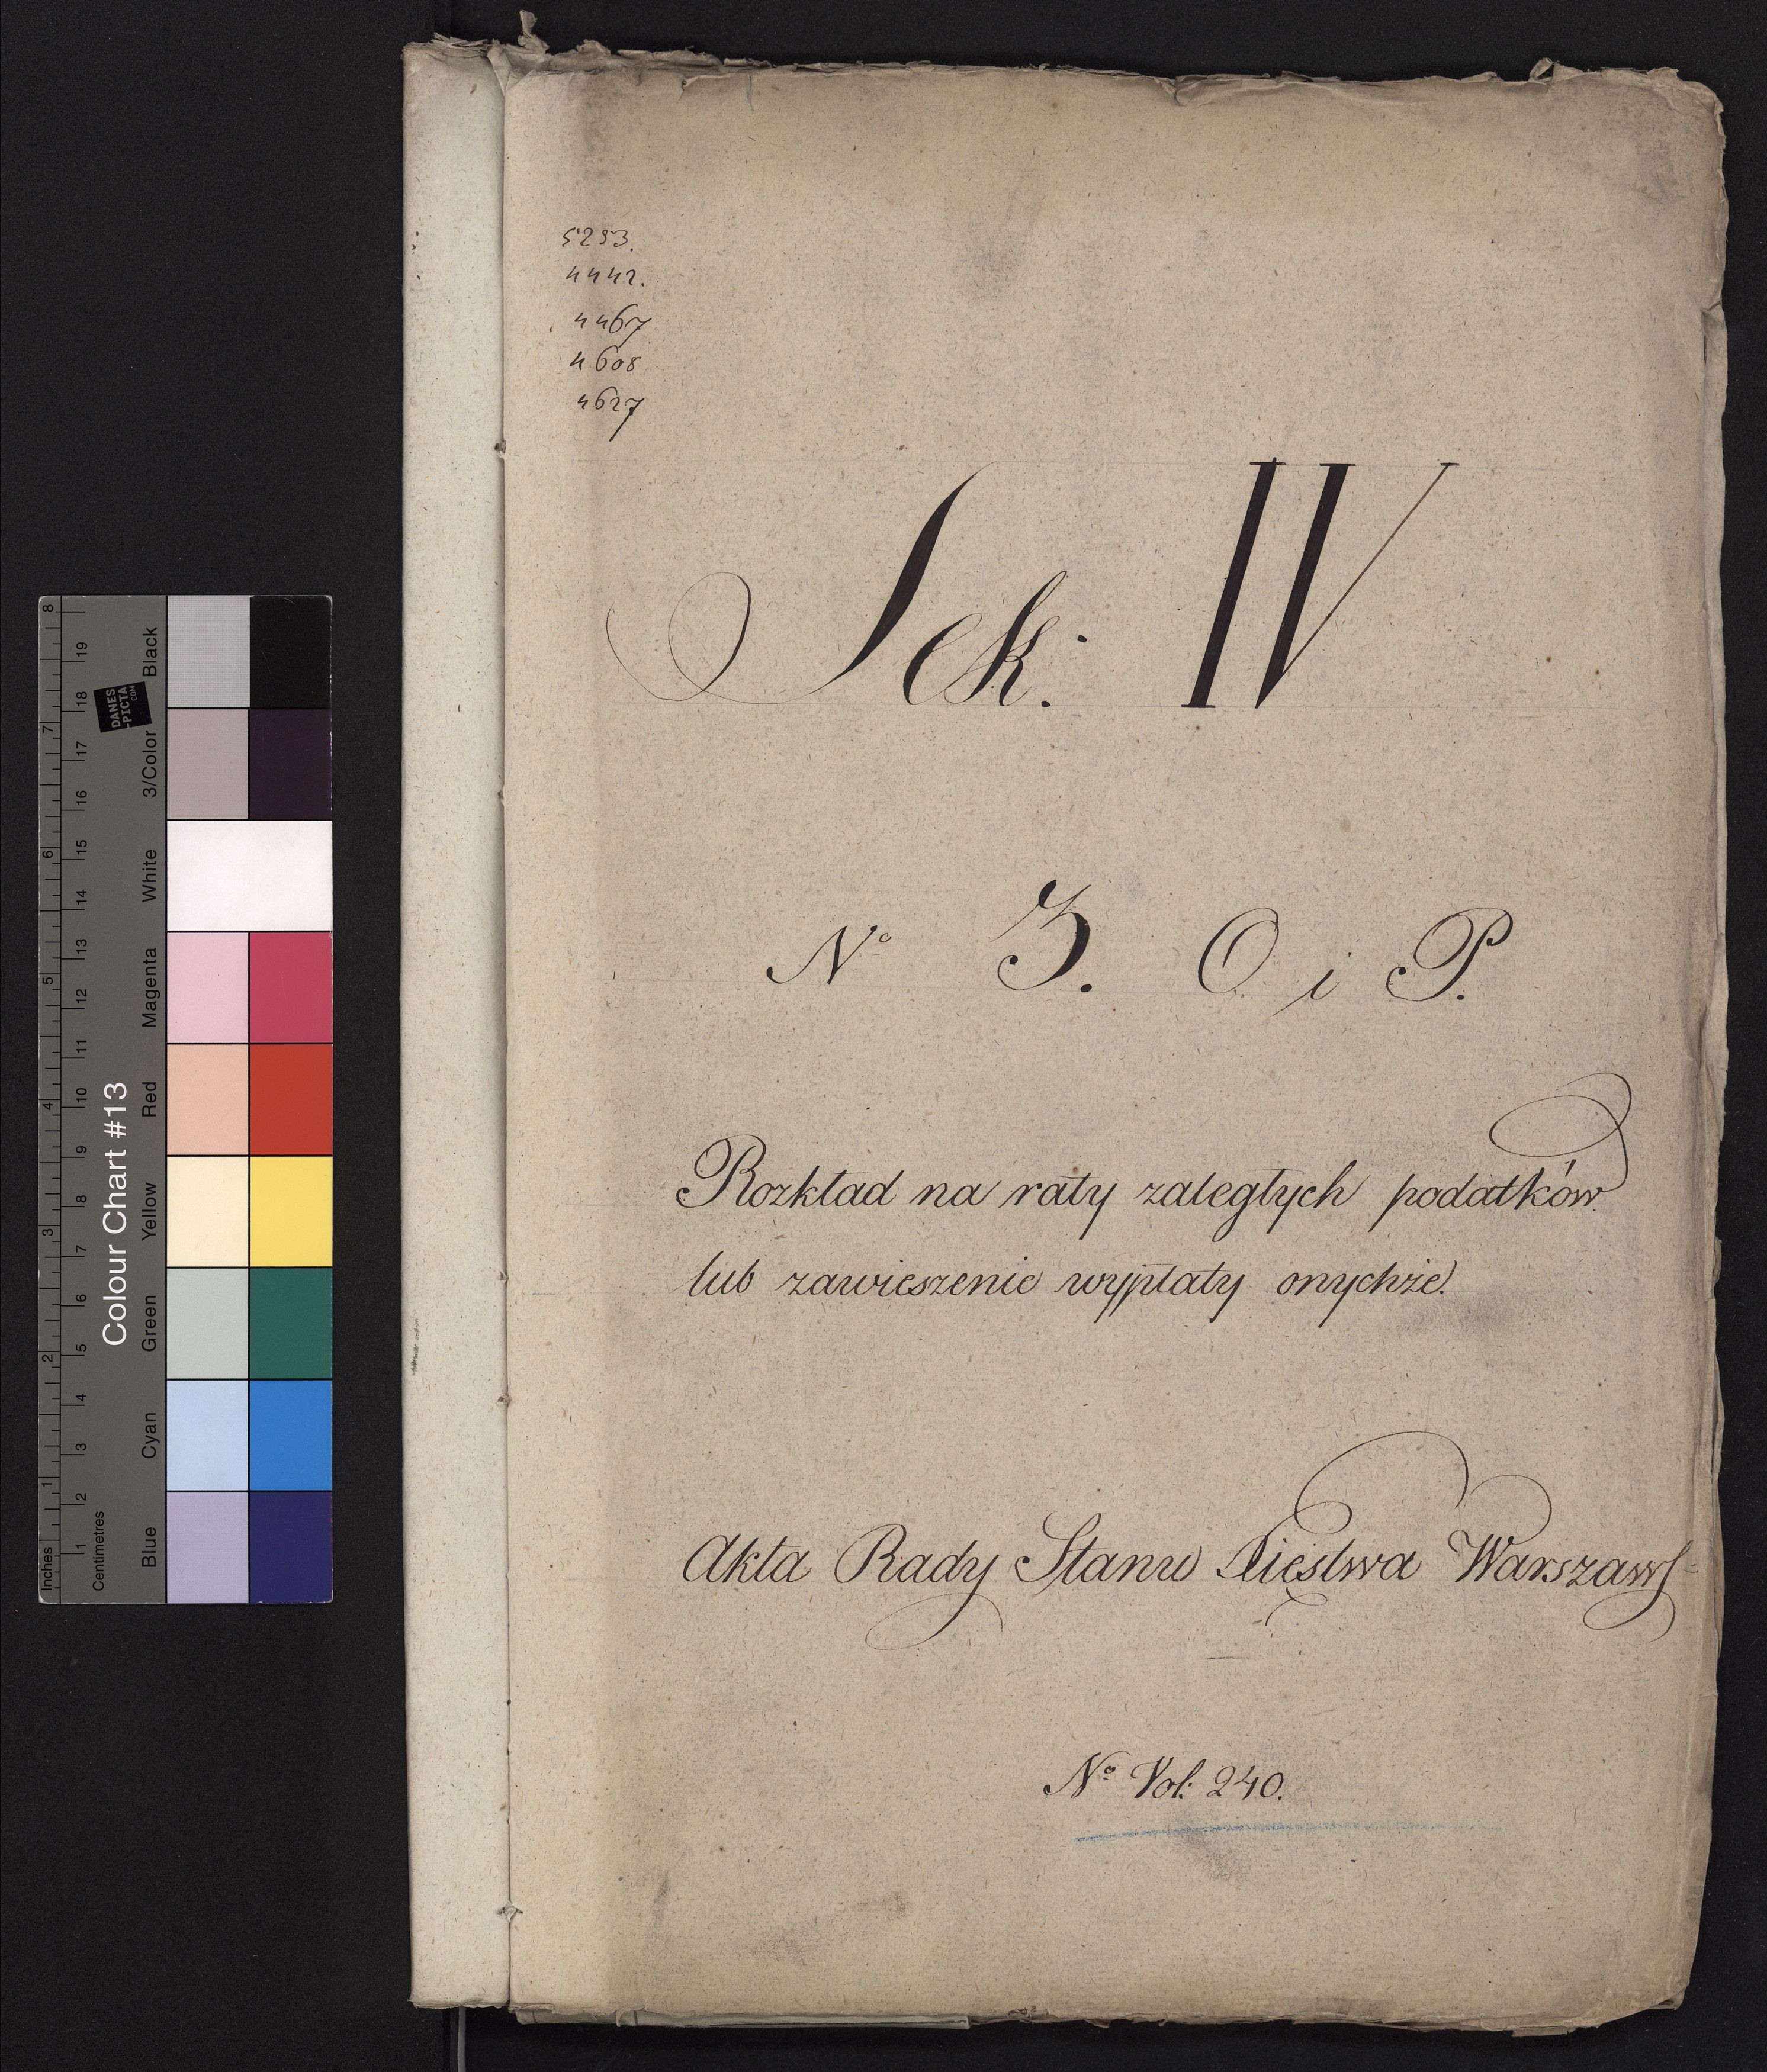 5293.
4442.
4467
4608
4627
Sek: IV
No 3. O i P.
Rozkład na raty zaległych podatków
lub zawieszenie wypłaty onychże.
Akta Rady Stanu Xięstwa Warszaws-
No Vol: 240.
Colour Chart #13
Blue Cyan Green Yellow Red Magenta White 3/Color Black
Inches 1 2 3 4 5 6 7 8
Centimetres 1 2 3 4 5 6 7 8 9 10 11 12 13 14 15 16 17 18 19
DANES
-PICTA
.COM